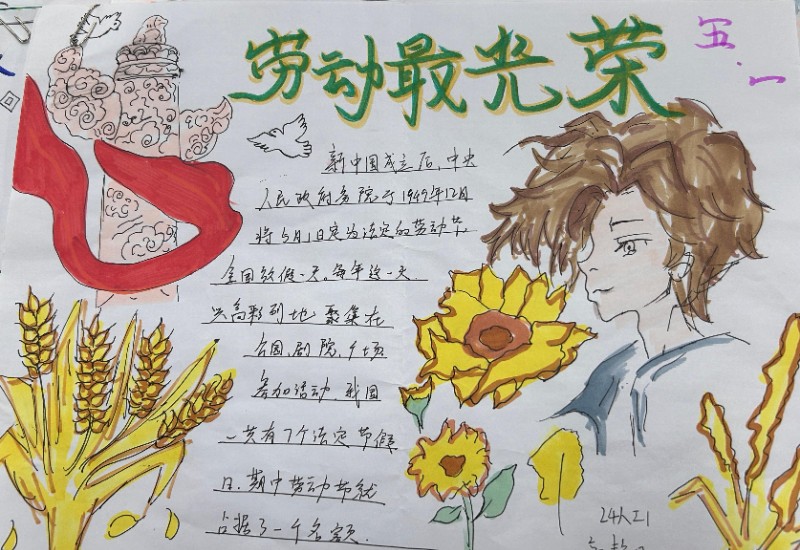 劳动最光荣
五·一
新中国成立后,中央
人民政府务院于1949年12月
将5月1日定为法定的劳动节,
全国放假一天。每年这一天,
兴高彩烈地聚集在
公园、剧院、广场
参加活动,我国
一共有7个法定节假
日,期中劳动节就
占据了一个名额.
24人工1